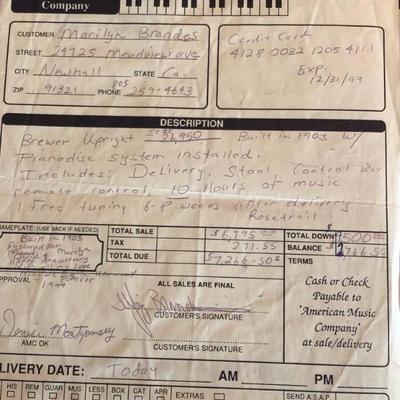 Company
CUSTOMER Marilyn Brandes
STREET 24725 Meadview ave
CITY Newhall STATE Ca.
ZIP 91321 PHONE 805 259-4643
Credit Card
4128 0032 1205 4111
Exp.
12/31/99
DESCRIPTION
Brewer Upright Built in 1903 w/
Pianodisc System installed.
Includes: Delivery, Stool Control Box
remote control, 10 Hours of music
1 Free tuning 6-8 weeks after delivery
Rosetrail
NAMEPLATE: (USE BACK IF NEEDED)
Built in 1903
Restored for
Marilyn
Anniversary
Love
1999
APPROVAL
TOTAL SALE $6,995.00
TAX 271.55
TOTAL DUE $7,266.50
TOTAL DOWN 4500.00
BALANCE 2766.55
TERMS
Cash or Check
Payable to
'American Music
Company'
at sale/delivery
ALL SALES ARE FINAL
CUSTOMER'S SIGNATURE
Denise Montgomery
AMC OK
CUSTOMER'S SIGNATURE
DELIVERY DATE: Today AM PM
HIS REM GUAR MUS LES BOX CAT APR EXTRAS SEND A.S.A.P.